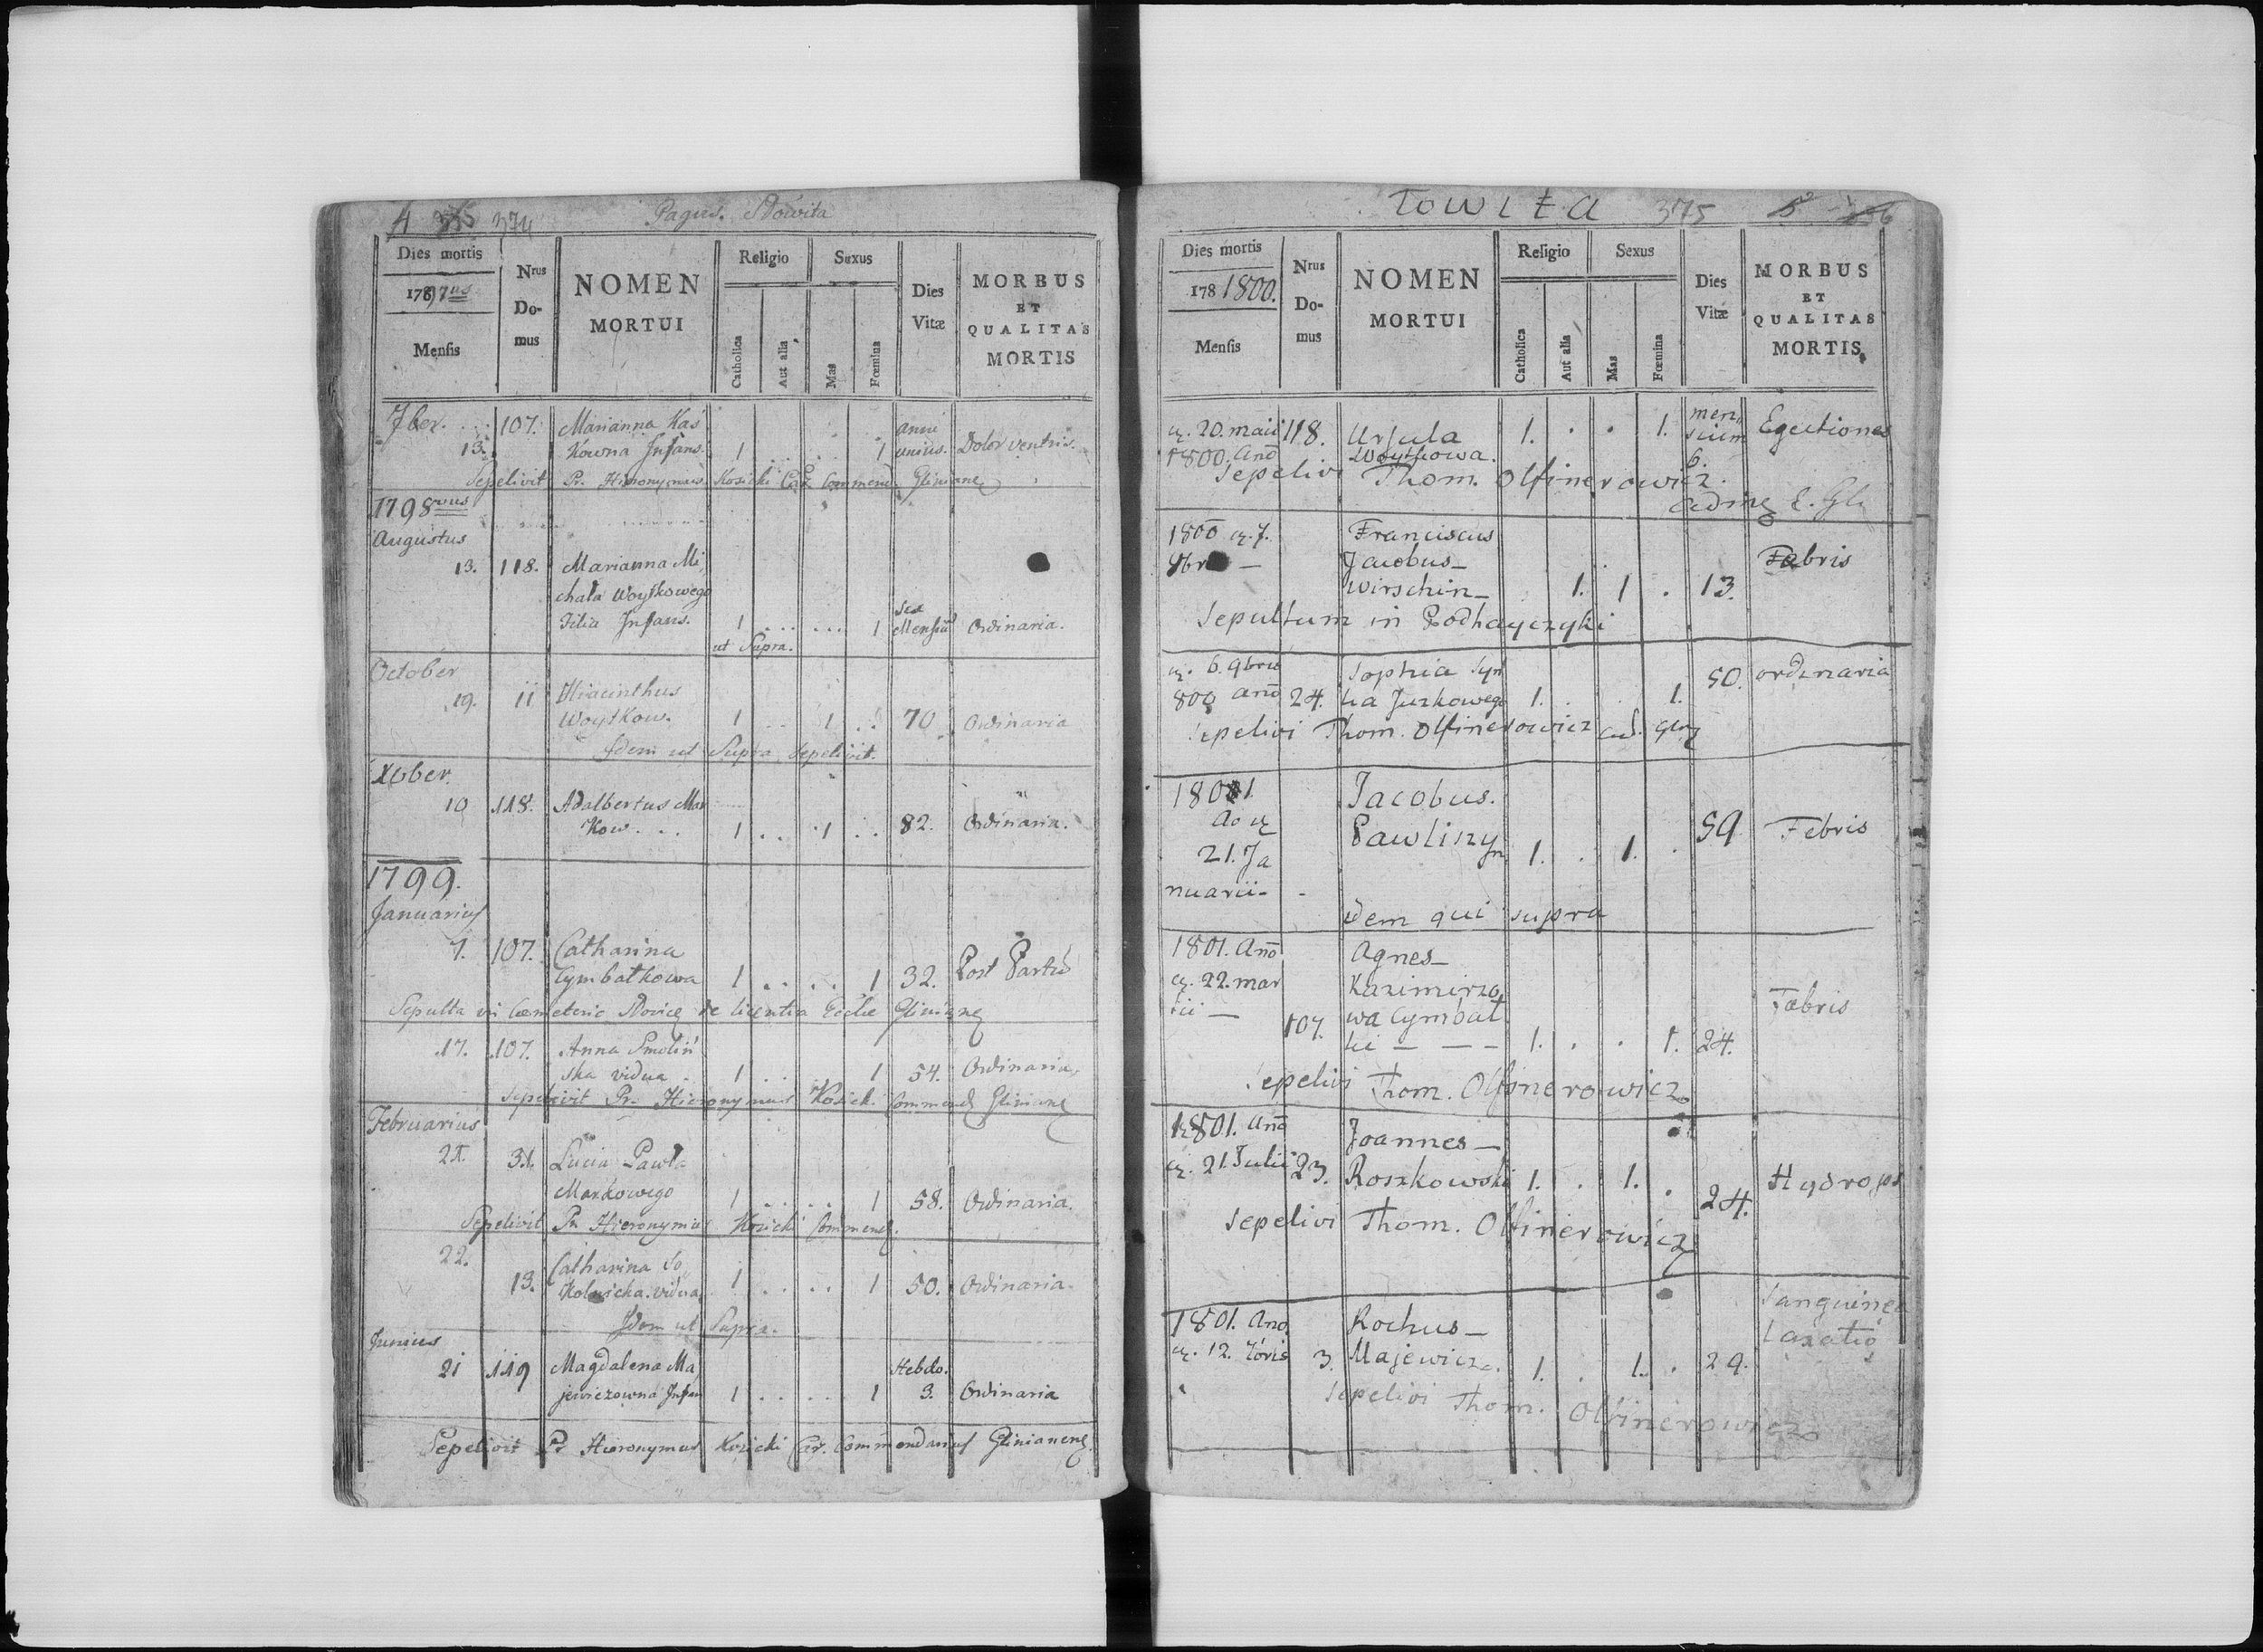 4 374 Pagus. Słowita
Dies mortis
1797us
Mensis
Nrus Do-mus
NOMEN MORTUI
Religio
Catholica
Aut alia
Sexus
Mas
Fœmina
Dies Vitæ
MORBUS ET QUALITAS MORTIS
7ber. 107. Marianna Kas anni
13. kowna Infans. 1 1 unius. Dolor ventris.
Sepelivit Pr. Hieronymus Kosicki Commend
1798vus
Augustus
13. 118. Marianna Mi
chała Woytkowego Sex
Filia Infans. 1 1 Mensiu Ordinaria.
ut Supra.
October
19. 11 Hiacinthus
Woytkow. 1 1 70 Ordinaria
Idem ut Supra sepelivit.
Xbber.
10 118. Adalbertus Mar
kow. 1 1 82. Ordinaria.
1799.
Januarius
7. 107. Catharina
Cymbałkowa 1 1 32. Post Partu
Sepulta in Cœmeterio de licentia
17. 107. Anna Smoliń
ska vidua 1 1 54. Ordinaria
Sepelivit Pr. Hieronymus Kosick. Commend
Februarius
21. 31. Lucia Pawła
Markowego 1 1 58. Ordinaria.
Sepelivit Pr. Hieronymus Kosicki Commend.
22. Catharina So
13. kolnicka vidua 1 1 50. Ordinaria.
Idem ut Supra.
Junius
21 119 Magdalena Ma Hebdo.
jewiczowna Infan 1 1 3. Ordinaria
Sepelivit Pr Hieronymus Kosicki Commendarius
375
Dies mortis
178 1800.
Mensis
Nrus Do-mus
NOMEN MORTUI
Religio
Catholica
Aut alia
Sexus
Mas
Fœmina
Dies Vitæ
MORBUS ET QUALITAS MORTIS
20. maii 118. Ursula 1. 1. men
1800. Ano Woytkowa. sium
6.
Sepelivi Thom. Olfinerowicz.
1800 7. Franciscus
Jacobus Fabris
Wirschin 1. 1 13.
Sepultum in Podhayczyki
6. 9bris Sophia Syn 50. ordinaria
800 ano 24. ka Jurkowego 1. 1.
Sepelivi Thom. Olfinerowicz
1801 Jacobus.
Ao Pawlinyn 1. 1. 59 Febris
21. Ja
nuarii
idem qui supra
1801. Ano Agnes
22. mar Kazimirzo Fabris
tii 107. wa Cymbał
ki 1. 1. 24.
Sepelivi Thom. Olfinerowicz
1801. Ano Joannes
21. Julii 23. Roszkowski 1. 1. 24. Hydrops
Sepelivi Thom. Olfinerowicz
1801. Ano Rochus Sanguinea
Laxatio
12. 3. Majewicz. 1. 1. 29.
Sepelivi Thom. Olfinerowicz